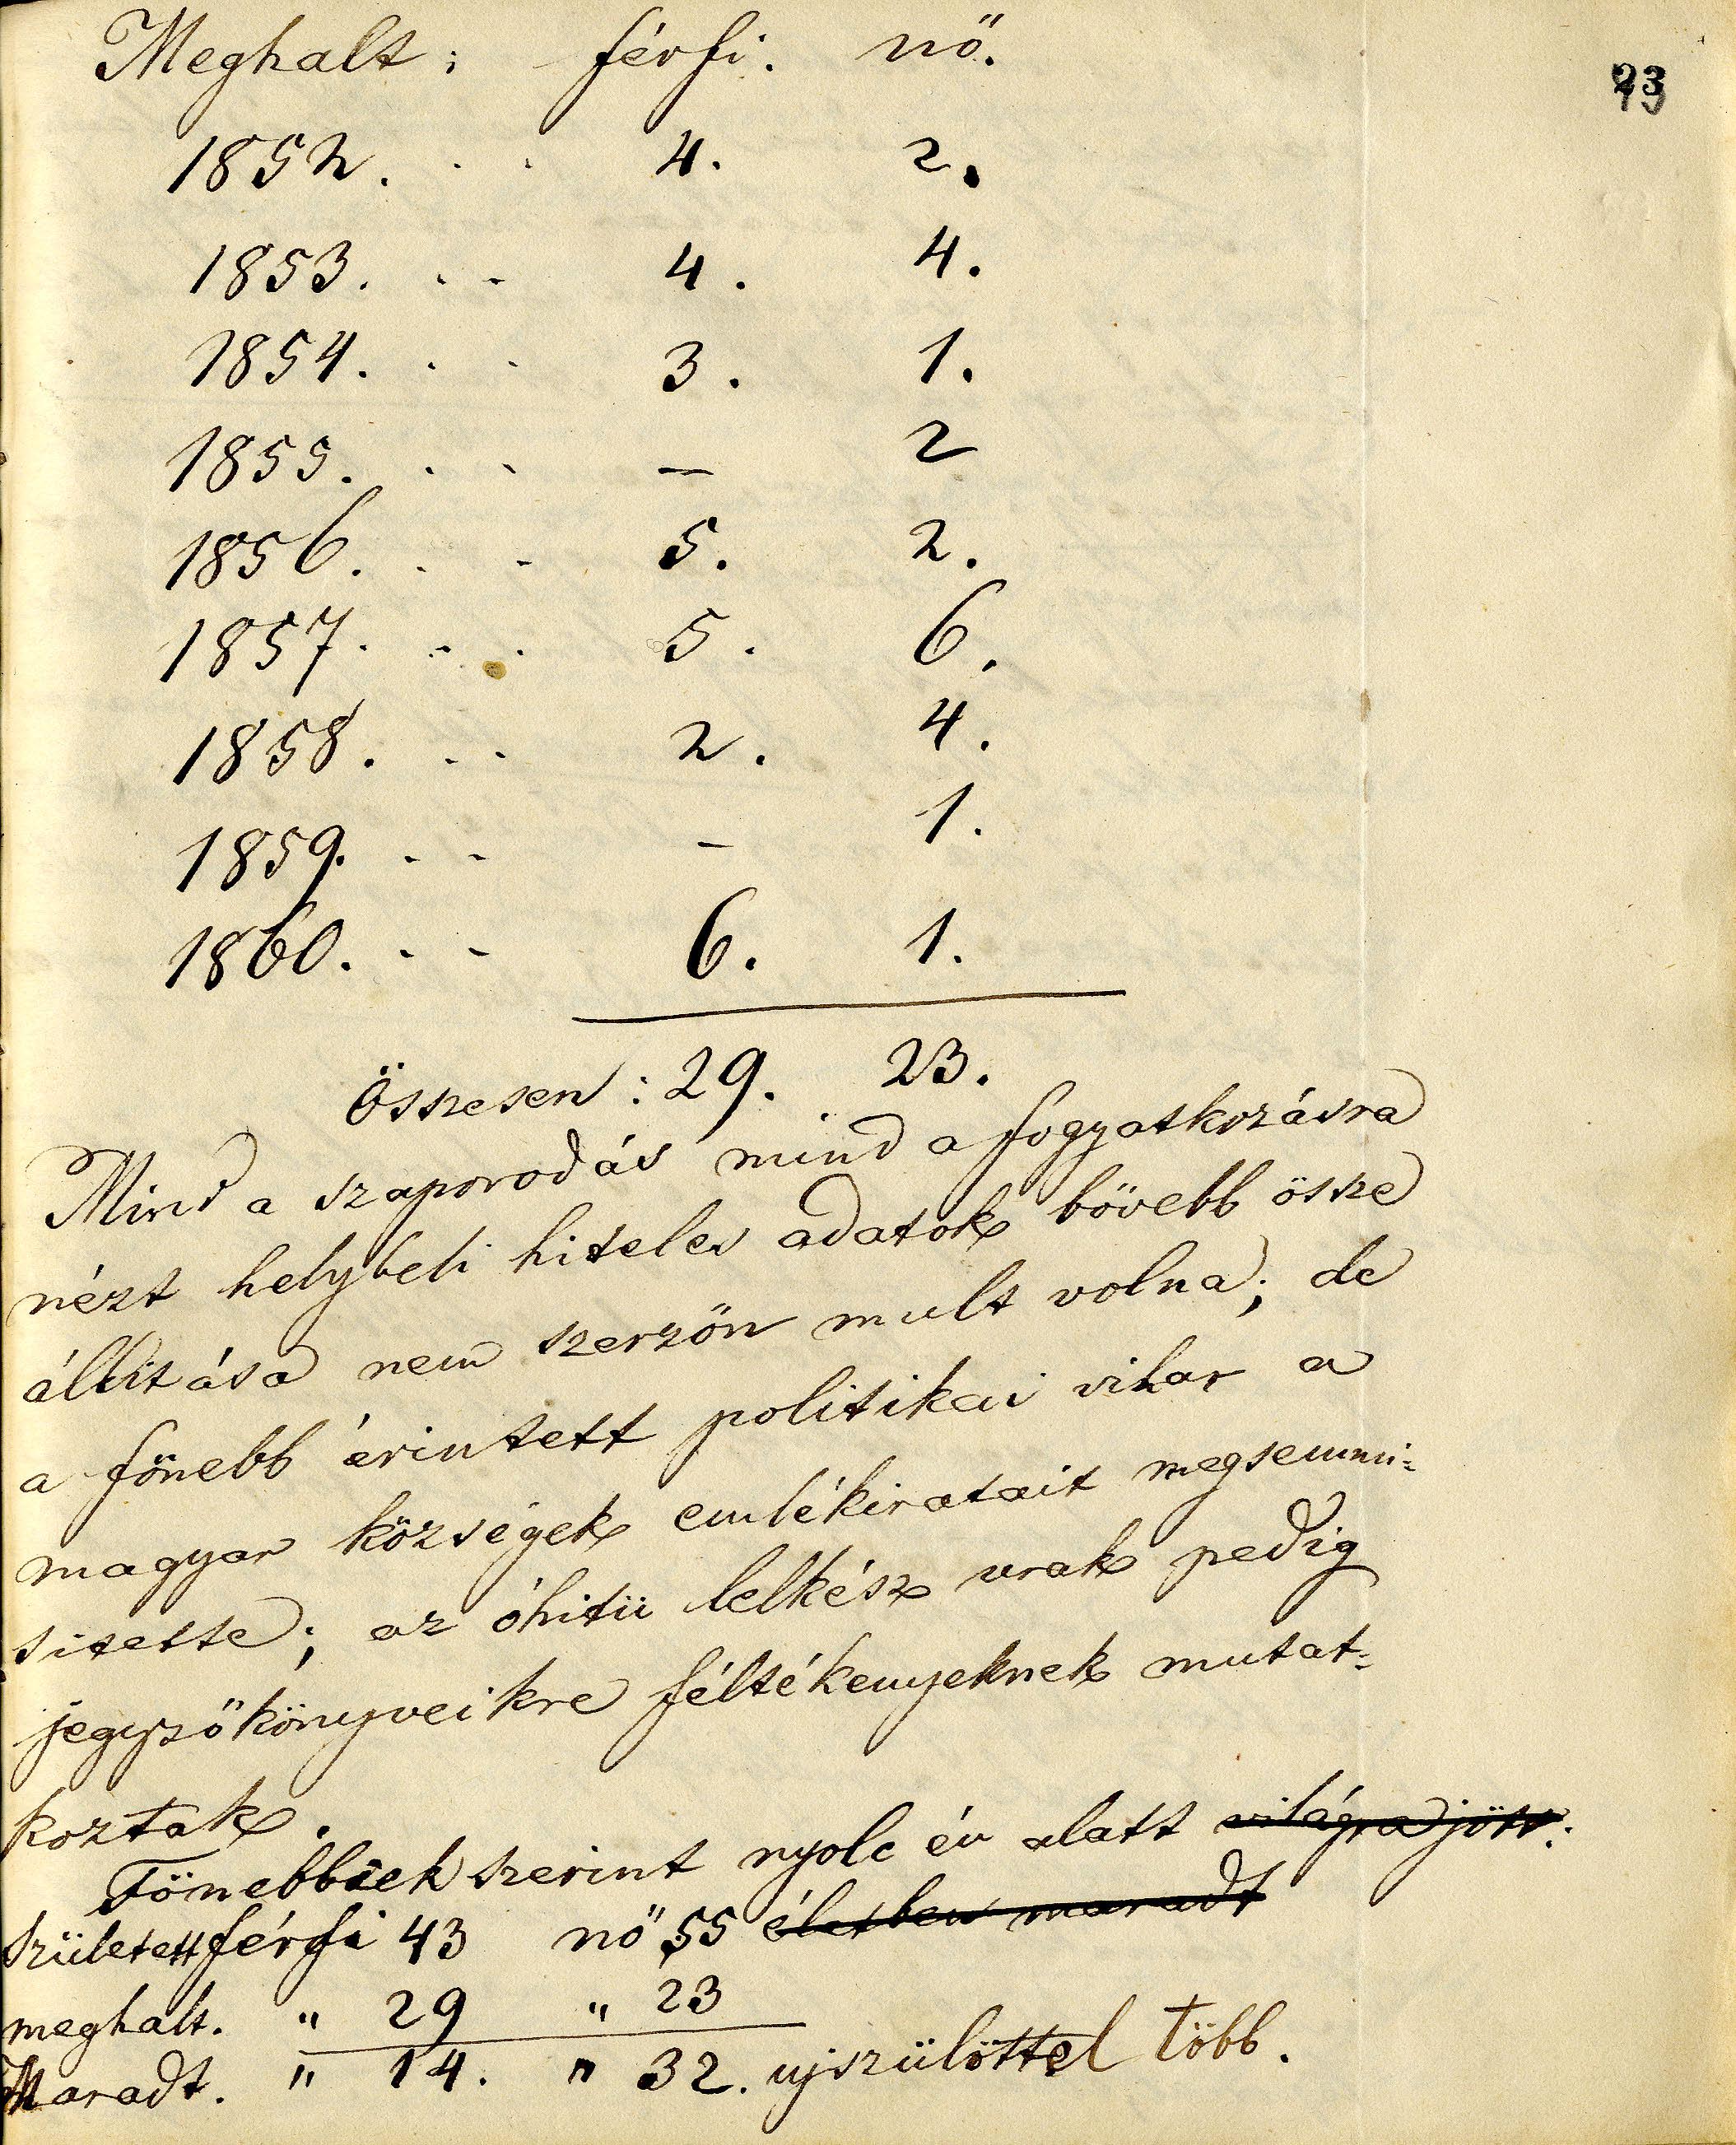 Meghalt: férfi. nő.
23
1852. . . 4. 2.
1853. . . 4. 4.
1854. . . 3. 1.
1855. . . — 2
1856. . . 5. 2.
1857. . . 5. 6.
1858. . . 2. 4.
1859. . . - 1.
1860. . . 6. 1.
Összesen: 29. 23.
Mind a szaporodás mind a fogyatkozásra
nézt helybeli hiteles adatok bövebb össze
állitása nem szerzőn mult volna; de
a fönebb érintett politikai vihar a
magyar községek emlékiratait megsemmi=
sitette; az óhitü lelkész urak pedig
jegyzőkönyveikre féltékenyeknek mutat=
koztak.
Fönebbiek szerint nyolc év alatt világra jött:
Született férfi 43 nő 55 életben maradt
meghalt. " 29 " 23
Maradt. " 14. " 32. ujszülöttel több.